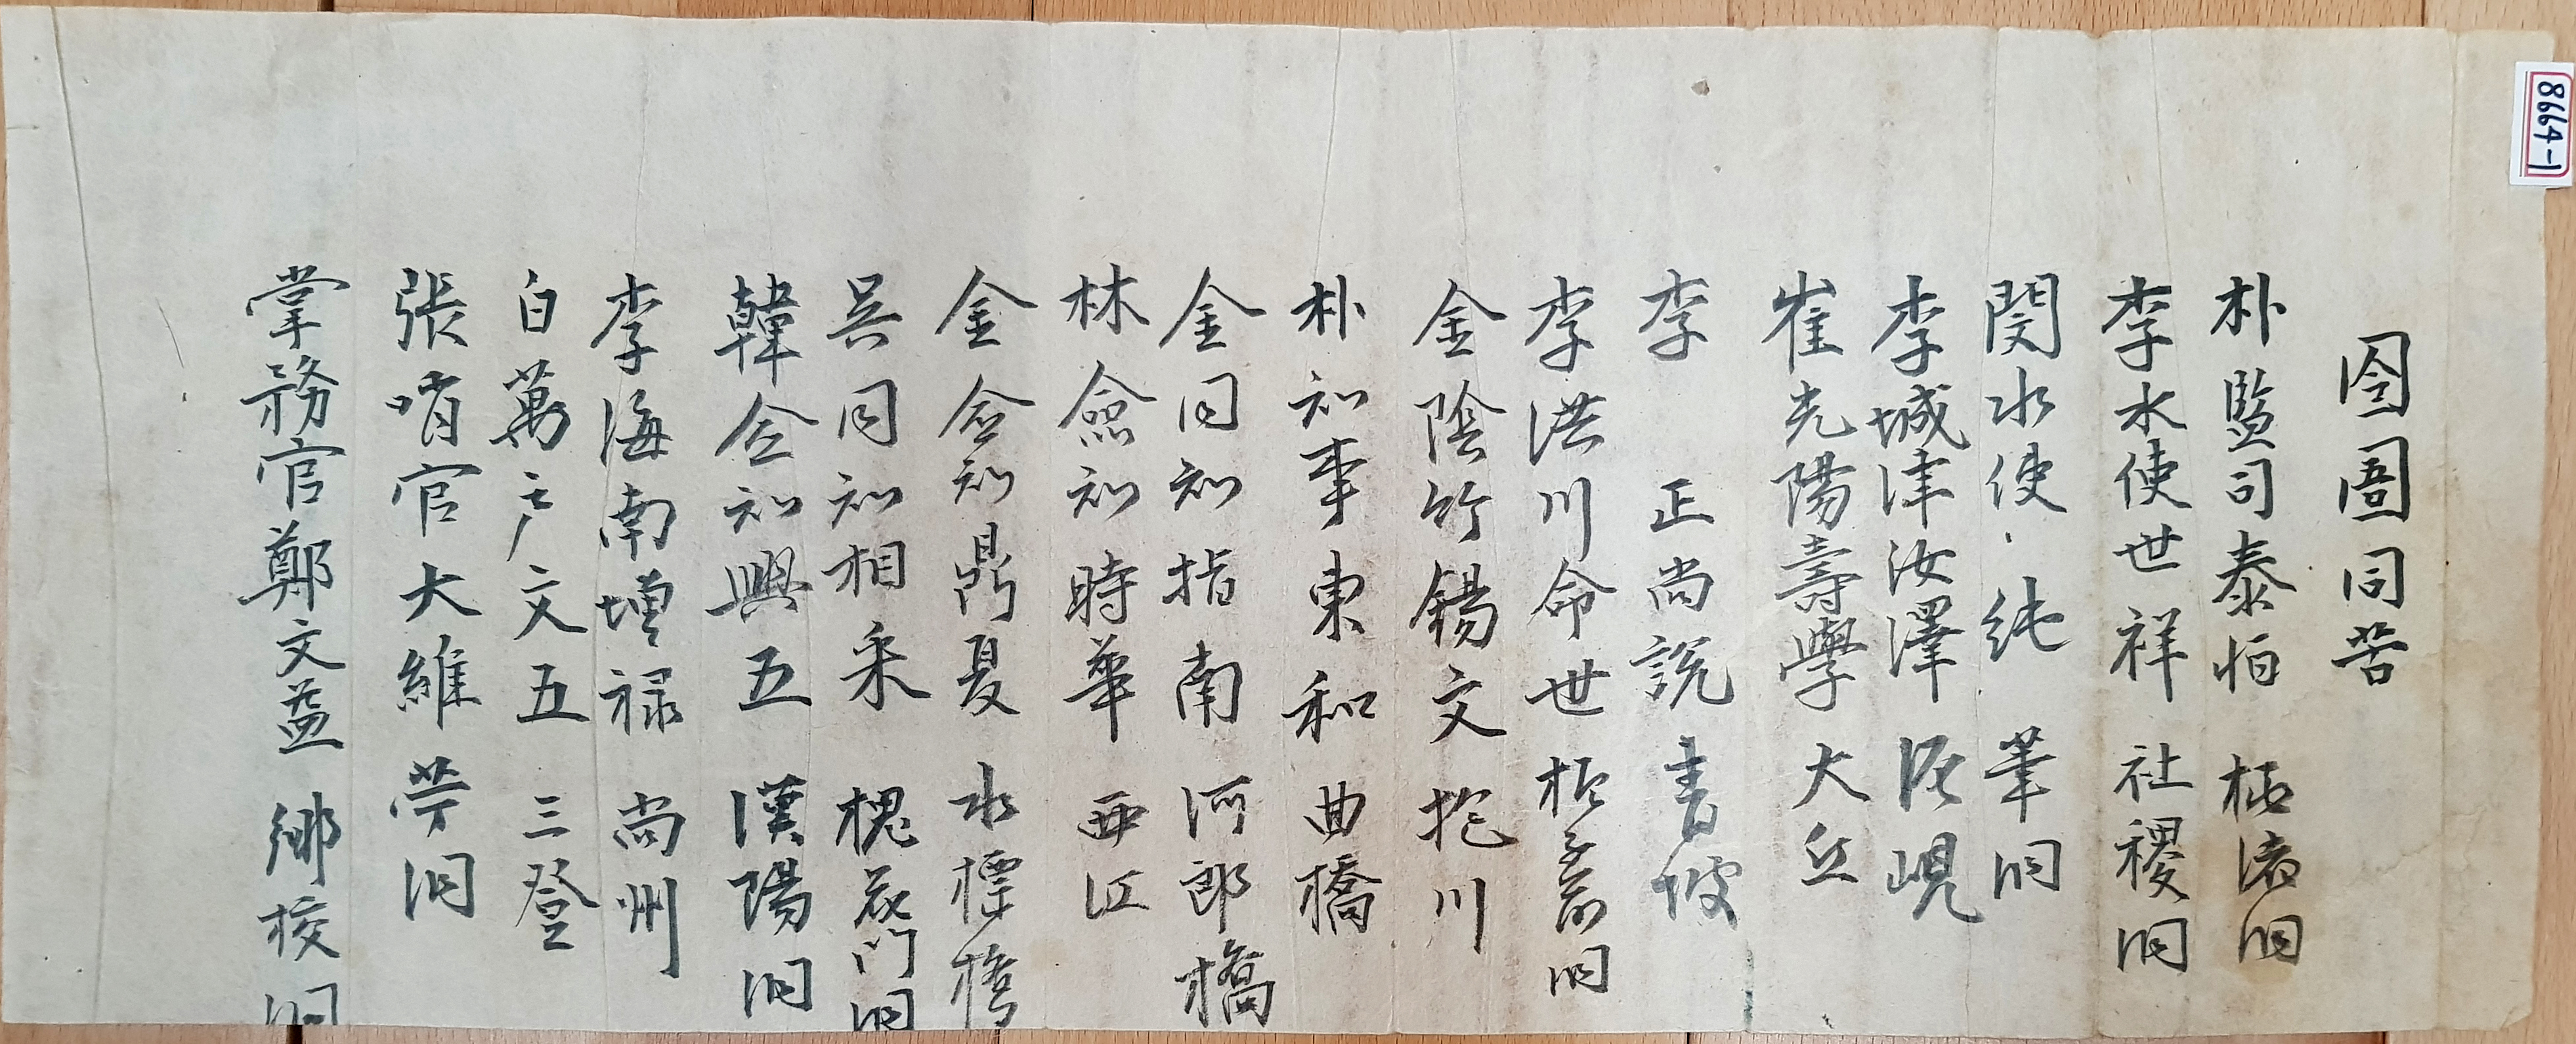 囹圄同苦
朴監司泰恒 社洞
李水使世祥 社稷洞
閔水使純 筆洞
李城津汝澤 泥峴
崔光陽壽學 大丘
李 正尚說 青坡
李洪川命世 洞
金陰竹錫文 抱川
朴知事東和 曲橋
金同知指南 河郎橋
林僉知時華 西江
金僉知鼎夏 水標橋
吳同知相采 槐花門洞
韓僉知興五 漢陽洞
李海南增祿 尚州
白萬戶文五 三登
張哨官大維 苧洞
掌務官鄭文益 鄕校洞
8664-1